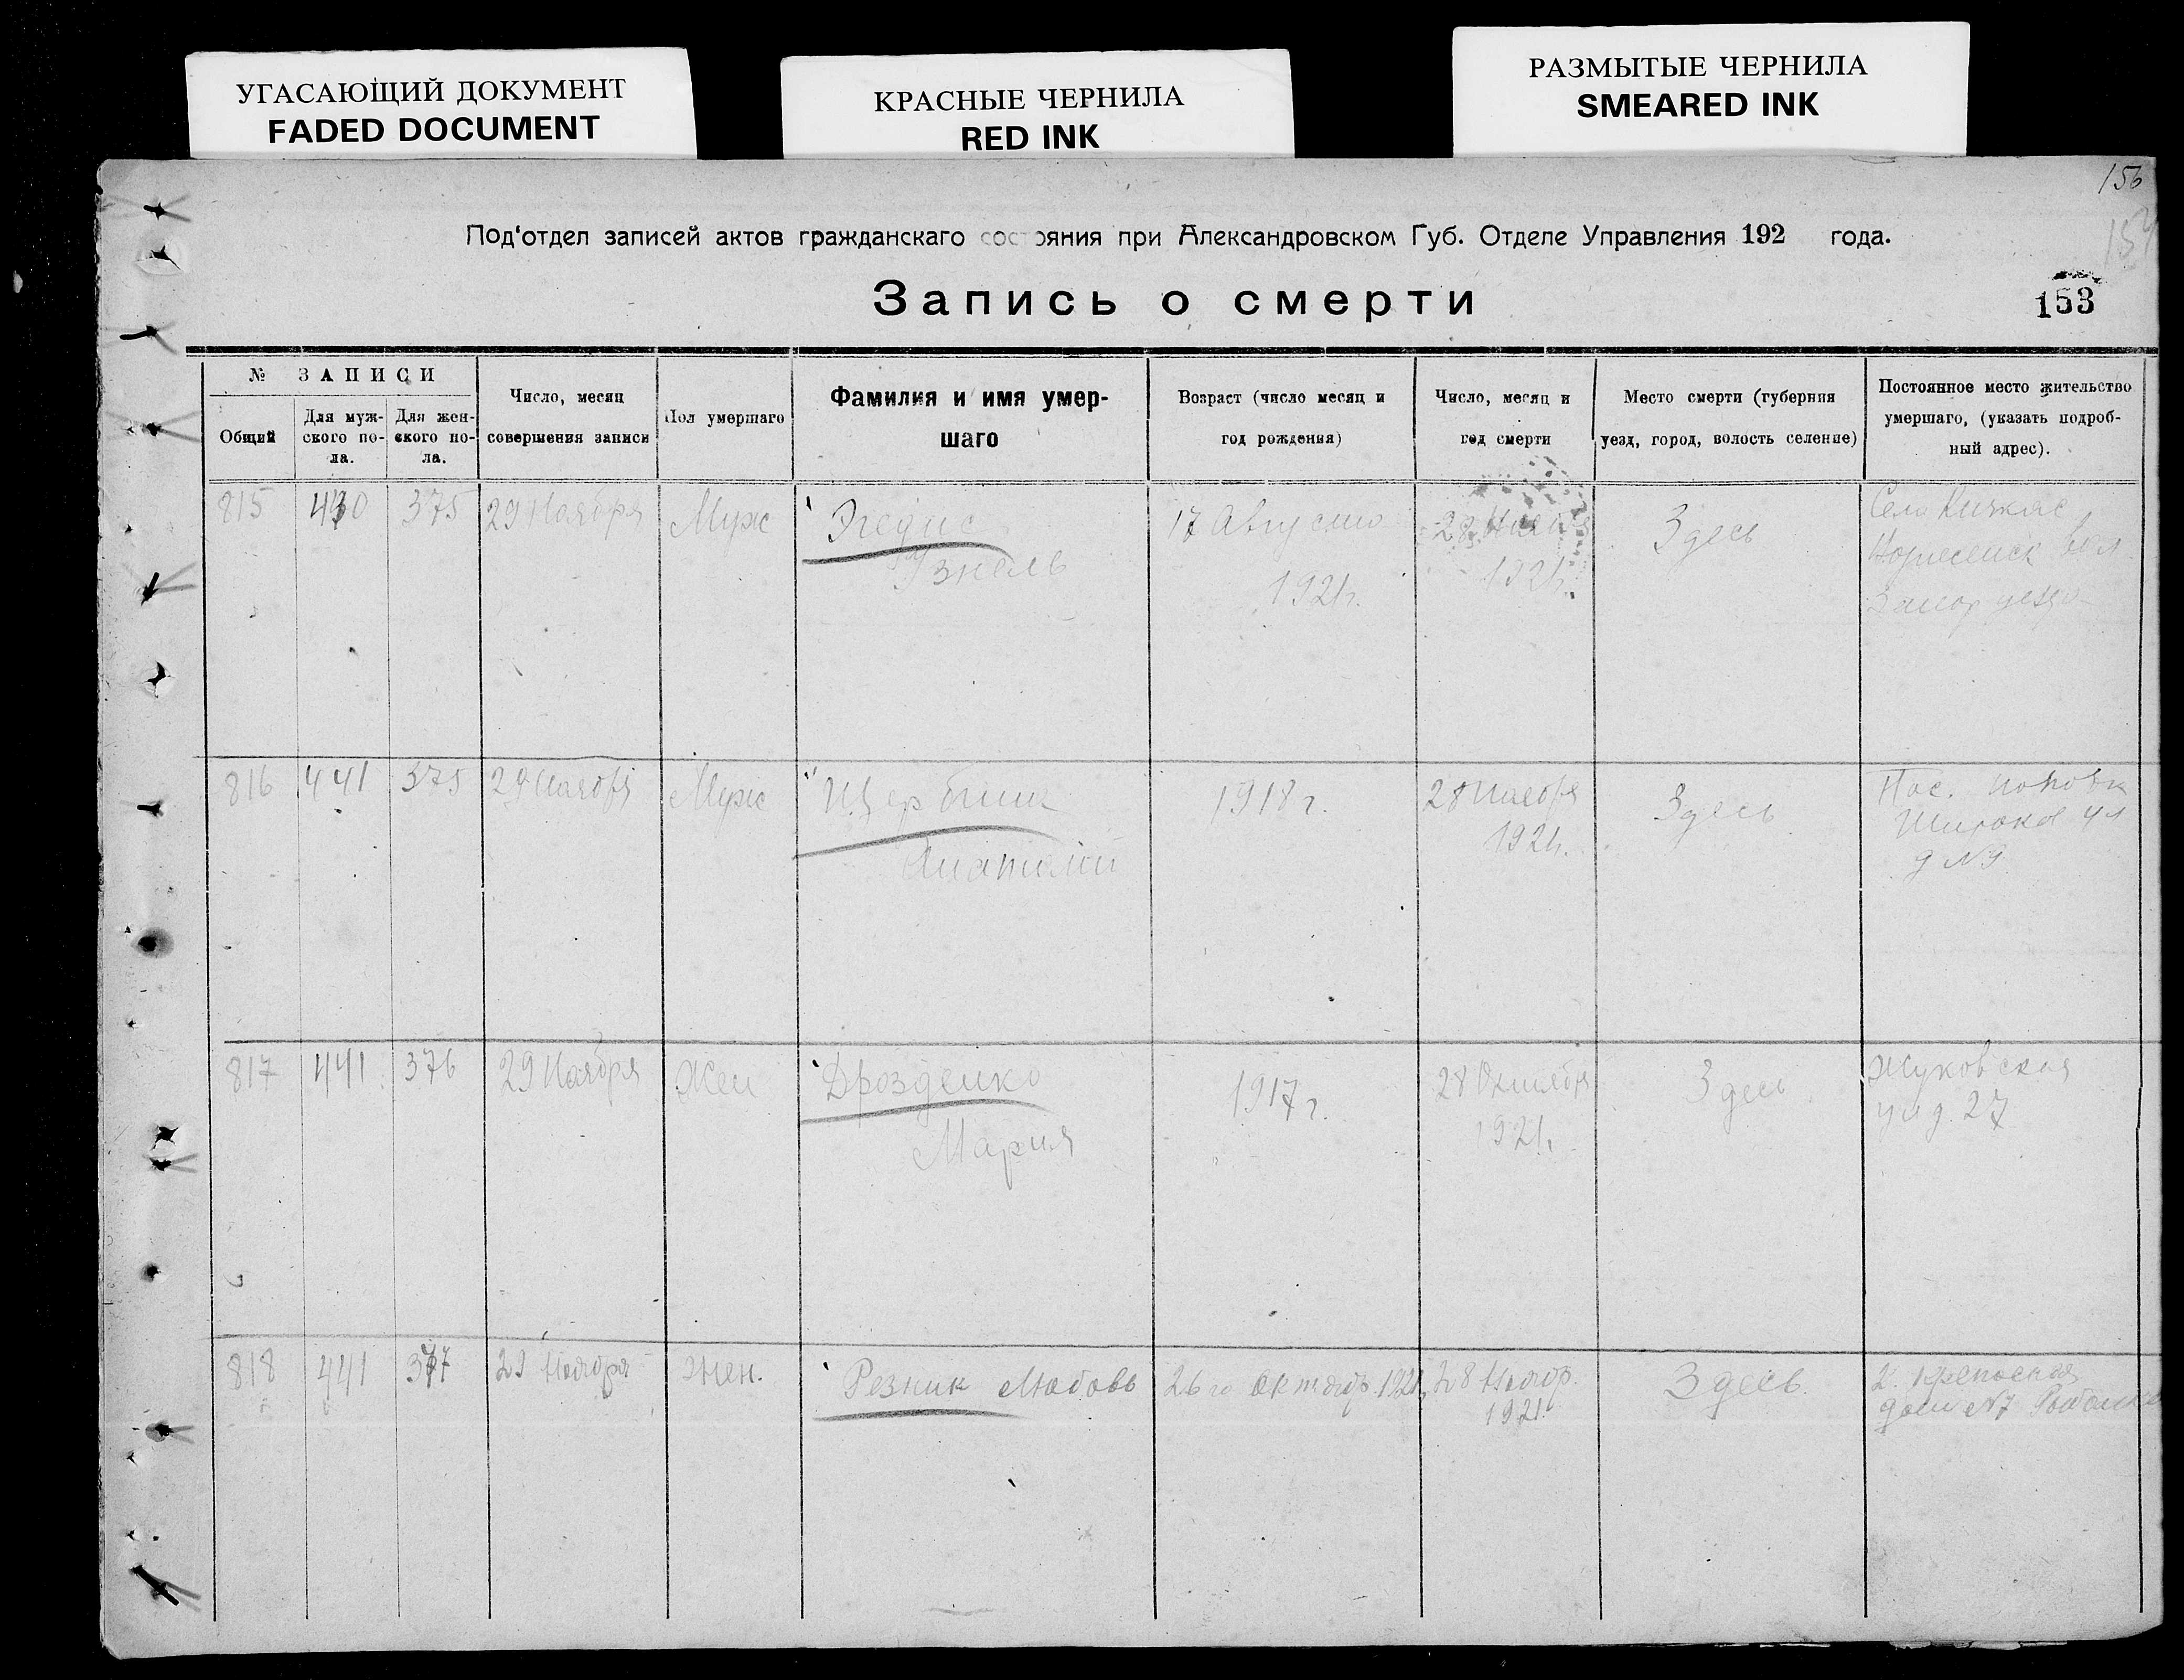 УГАСАЮЩИЙ ДОКУМЕНТ
FADED DOCUMENT
КРАСНЫЕ ЧЕРНИЛА
RED INK
РАЗМЫТЫЕ ЧЕРНИЛА
SMEARED INK
156
Под'отдел записей актов гражданскаго состояния при Александровском Губ. Отделе Управления 192 года.
Запись о смерти
153
№ ЗАПИСИ
Общий
Для муж-
ского по-
ла.
Для жен-
ского по-
ла.
Число, месяц
совершения записи
Пол умершаго
Фамилия и имя умер-
шаго
Возраст (число месяц и
год рождения)
Число, месяц и
год смерти
Место смерти (губерния
уезд, город, волость селение)
Постоянное место жительство
умершаго, (указать подроб-
ный адрес).
815 440 375 29 Ноября Муж
17 Августа
1921г.
28 Ноября
1921г.
Здесь
Село Кичкас
вол.
Запор уезда
816 441 375 29 Ноября Муж
Щербина
Анатолий
1918 г.
28 Ноября
1921г.
Здесь
Пос.
Широкая ул
д № 9
817 441 376 29 Ноября Жен
Дрозденко
Мария
1917 г.
28 Октября
1921г.
Здесь
Жуковская
ул д. 27
818 441 377 29 Ноября Жен.
Резник Любовь
26 го Октябр. 1921г.
28 Ноябр.
1921.
Здесь.
дом №7